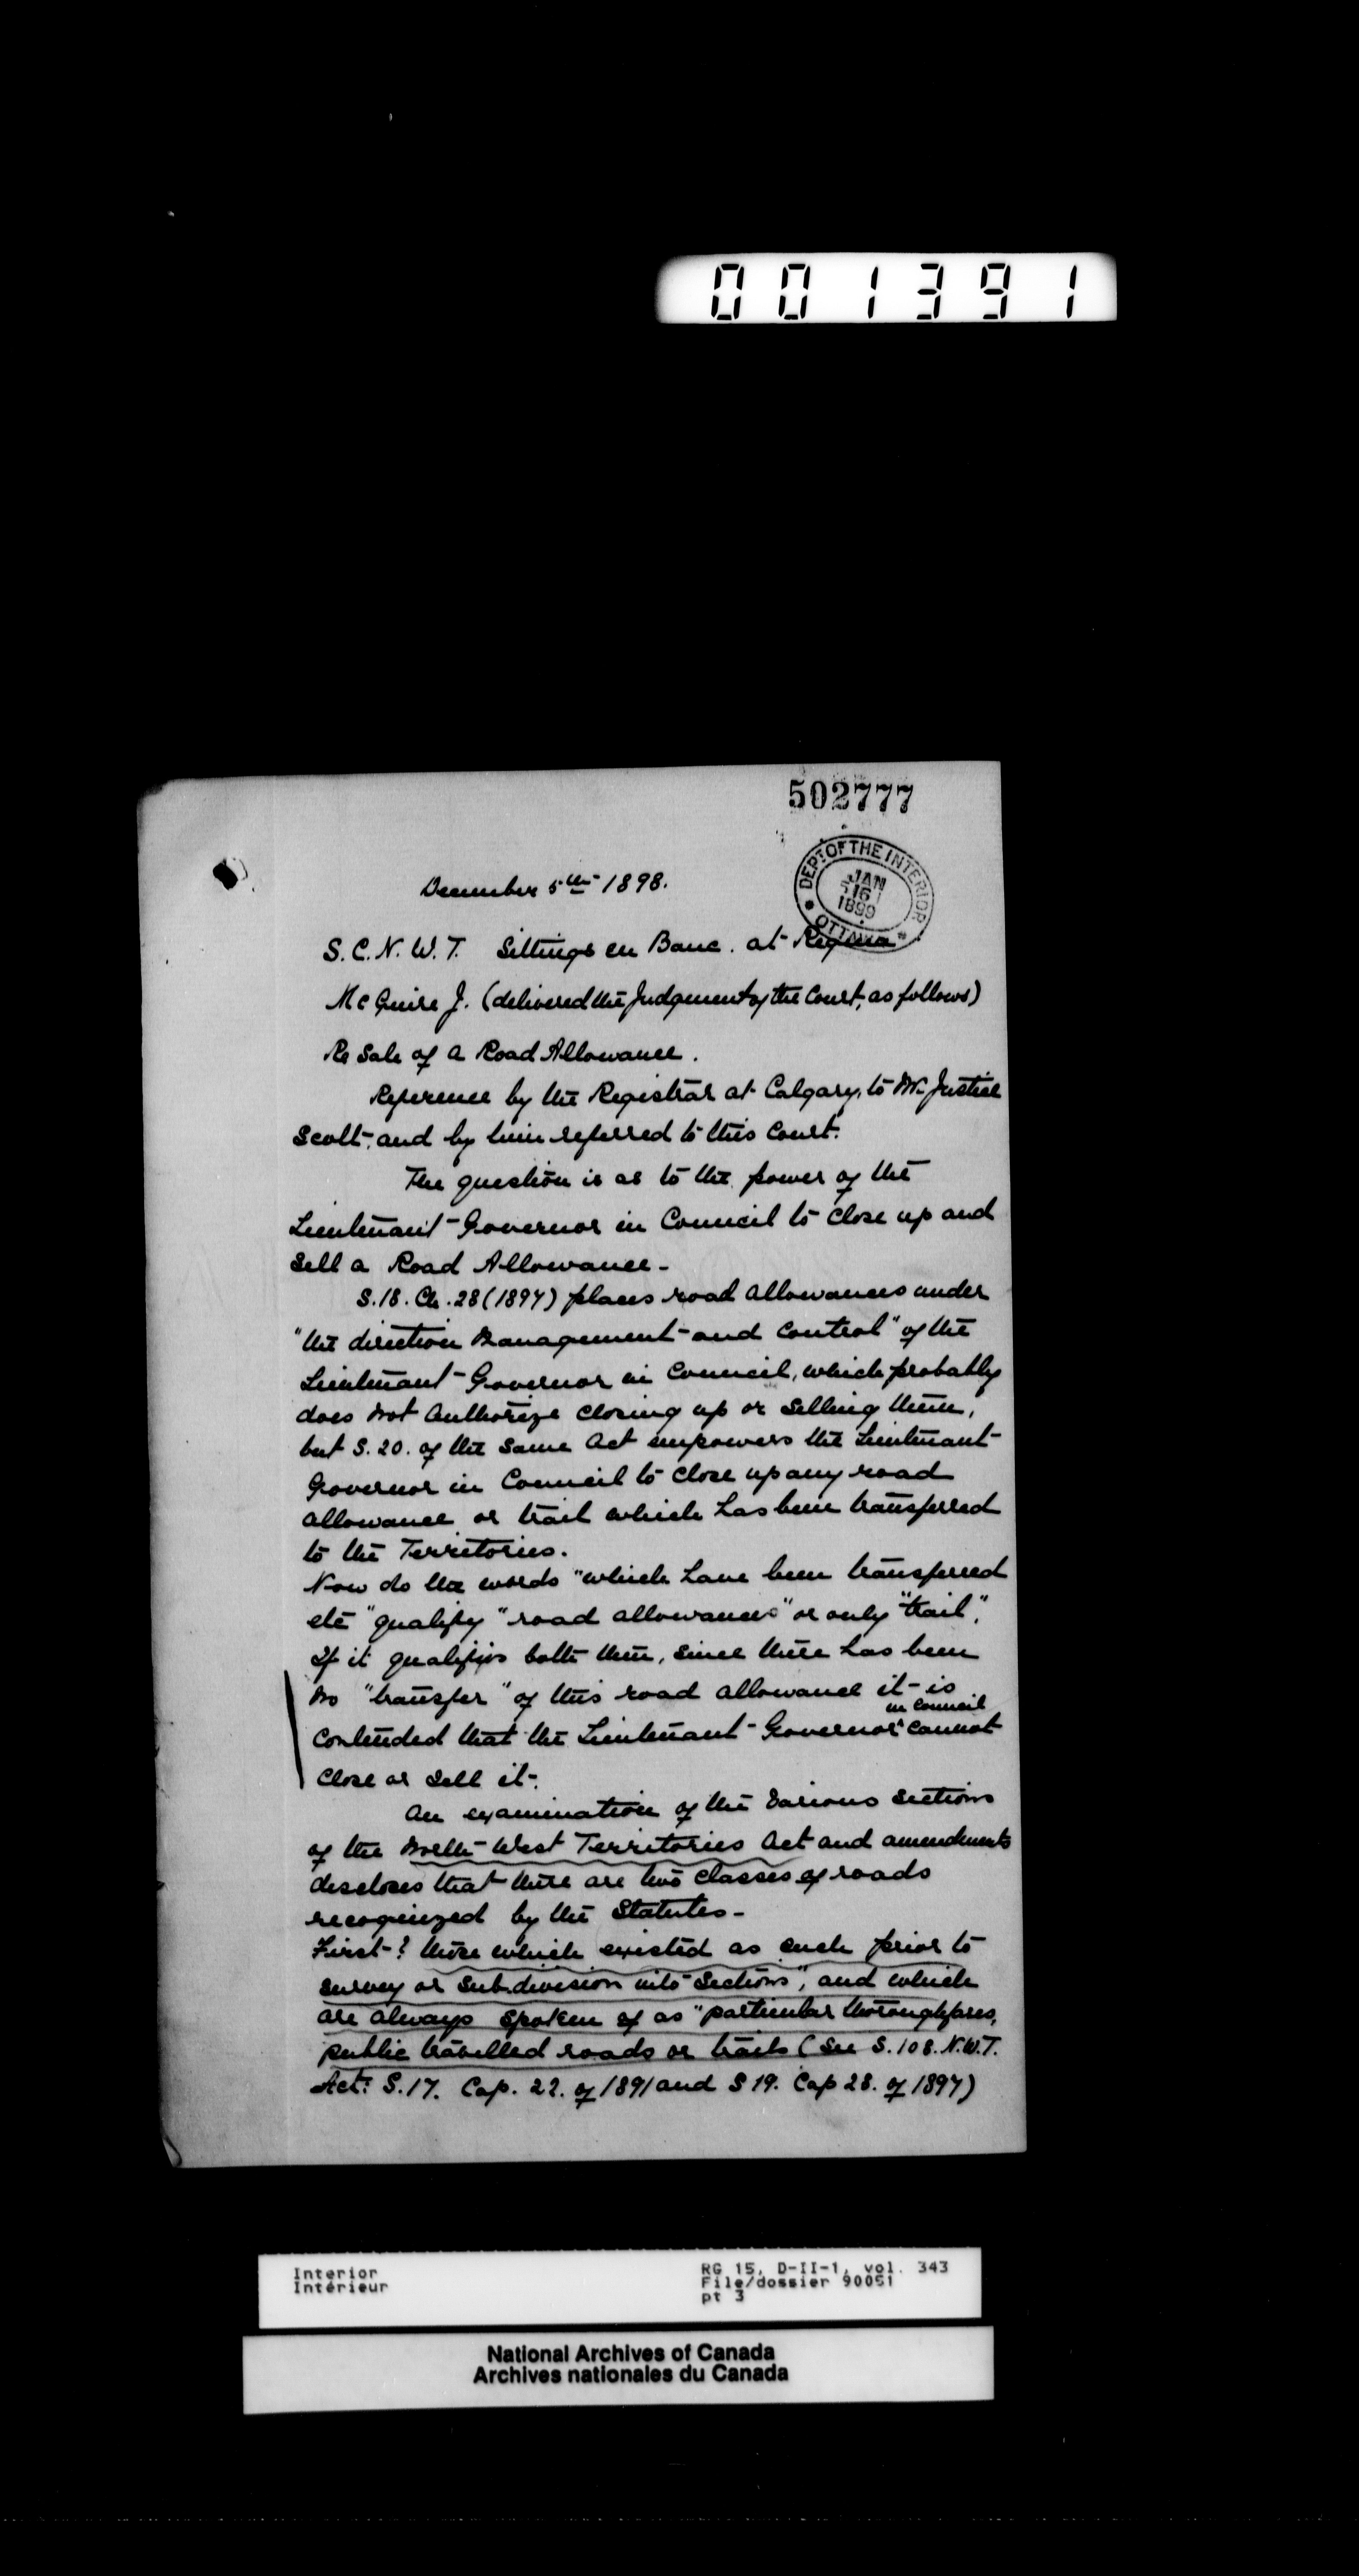 001391
502777
DEPT OF THE INTERIOR
JAN
16
1899
OTTAWA
December 5th 1898.
S. C. N. W. T. Sittings en Banc. at Regina
McGuire J. (delivered the Judgement of the Court, as follows)
Re Sale of a Road Allowance.
Reference by the Registrar at Calgary, to Mr. Justice
Scott, and by him referred to this Court.
The question is as to the power of the
Lieutenant-Governor in Council to close up and
sell a Road Allowance-
S.18. Ch. 28 (1897) places road allowances under
"the direction management and control" of the
Lieutenant-Governor in Council, which probably
does not authorize closing up or selling them,
but S. 20. of the same Act empowers the Lieutenant-
Governor in Council to close up any road
allowance or trail which has been transferred
to the Territories.
Now do the words "which have been transferred
etc" qualify "road allowances" or only "trail".
If it qualifies both then, since there has been
no "transfer" of this road allowance it is
contended that the Lieutenant-Governor in Council cannot
close or sell it.
An examination of the various sections
of the North-West Territories Act and amendments
discloses that there are two classes of roads
recognized by the Statutes-
First-? those which existed as such prior to
survey or subdivision into Sections", and which
are always spoken of as "particular thoroughfares,
public travelled roads or trails (See S. 108. N.W.T.
Act: S. 17. Cap. 22. of 1891 and S 19. Cap 28. of 1897)
Interior
Intérieur
RG 15, D-II-1, vol. 343
File/dossier 90051
pt 3
National Archives of Canada
Archives nationales du Canada